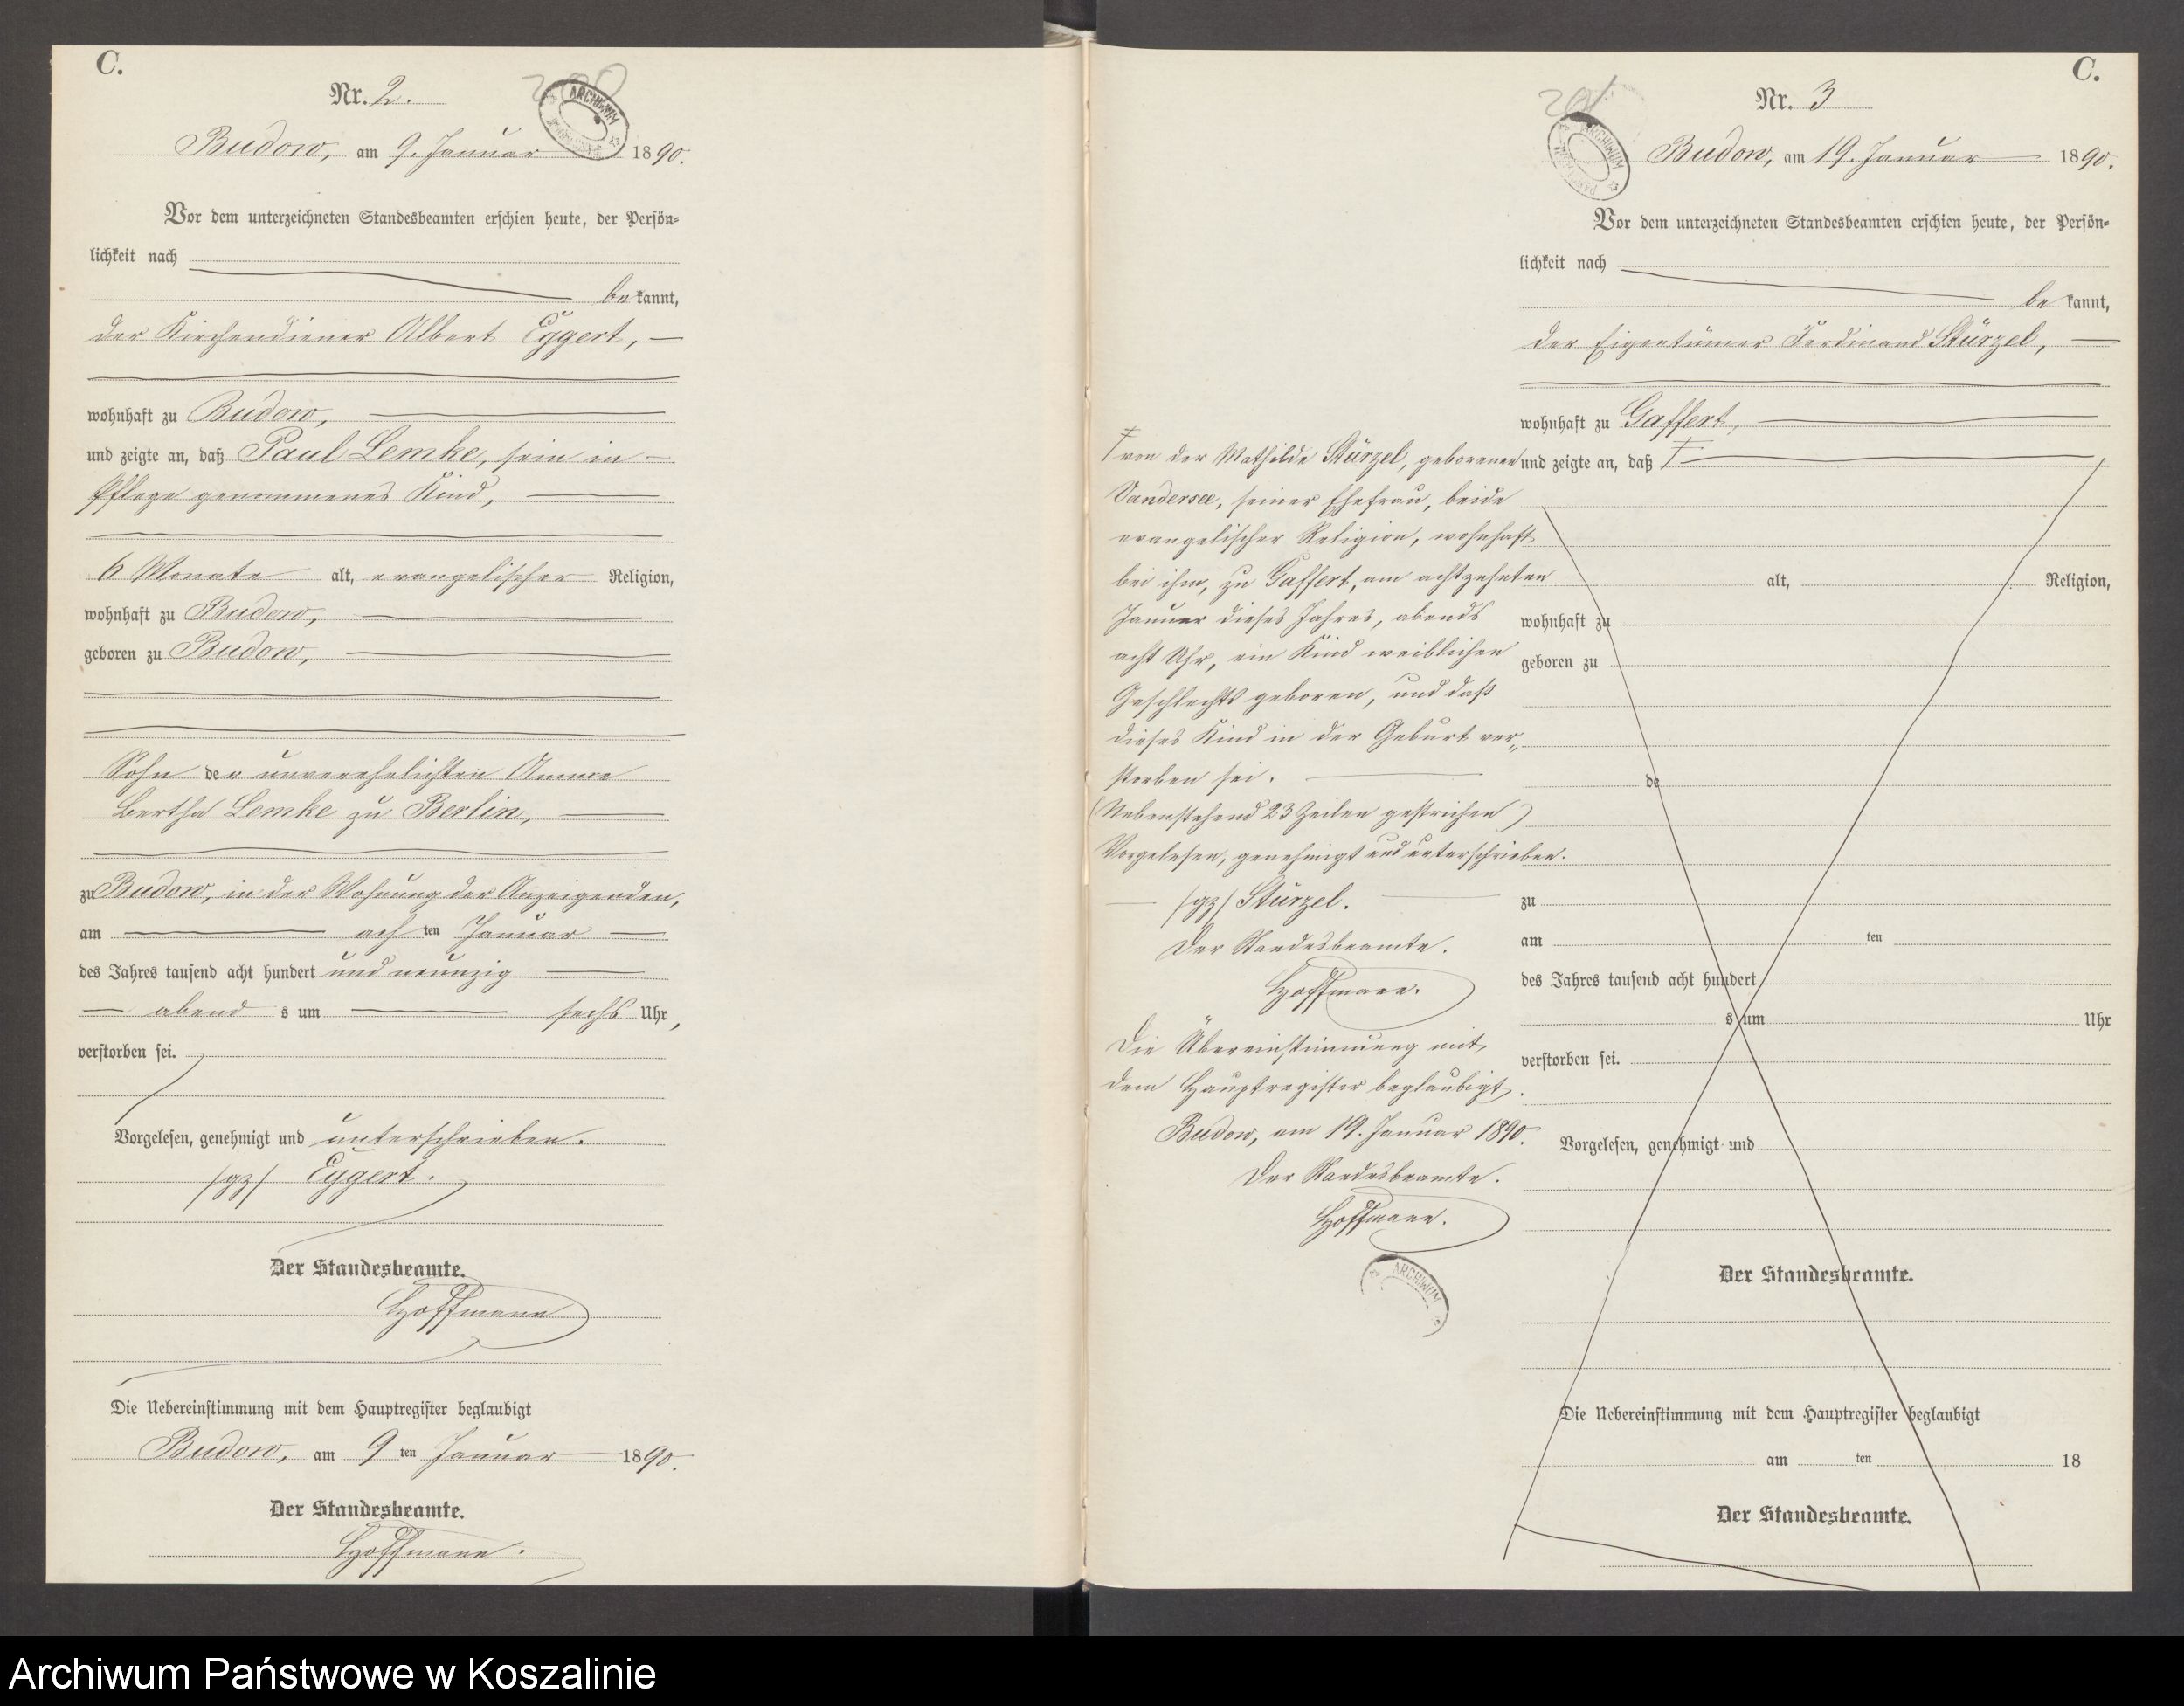 C.
Nr. 2.
Budow, am 9. Januar 1890.
Vor dem unterzeichneten Standesbeamten erschien heute, der Persön-
lichkeit nach
bekannt,
der Kirchendiener Albert Eggert,
wohnhaft zu Budow,
und zeigte an, daß Paul Lemke, sein in
Pflege genommenes Kind,
6 Monate alt, evangelischer Religion,
wohnhaft zu Budow,
geboren zu Budow,
Sohn der unverehelichten Amme
Bertha Lemke zu Berlin,
zu Budow, in der Wohnung der Anzeigenden,
am achten Januar
des Jahres tausend acht hundert und neunzig
abends um sechs Uhr,
verstorben sei.
Vorgelesen, genehmigt und unterschrieben.
/gz/ Eggert.
Der Standesbeamte.
Hoffmann
Die Uebereinstimmung mit dem Hauptregister beglaubigt
Budow, am 9 ten Januar 1890.
Der Standesbeamte.
Hoffmann.
C.
Nr. 3
201
ARCHIWUM
Budow, am 19. Januar 1890.
Vor dem unterzeichneten Standesbeamten erschien heute, der Persön-
lichkeit nach
bekannt,
der Eigentümer Ferdinand Stürzel,
wohnhaft zu Gaffert,
und zeigte an, daß
von der Mathilde Stürzel, geborenen
Vandersee, seiner Ehefrau, beide
evangelischer Religion, wohnhaft
bei ihm, zu Gaffert, am achtzehnten
Januar dieses Jahres, abends
acht Uhr, ein Kind weiblichen
Geschlechts geboren, und daß
dieses Kind in der Geburt ver-
storben sei.
(Nebenstehend 23 Zeilen gestrichen)
Vorgelesen, genehmigt und unterschrieben.
/gz/ Stürzel.
Der Standesbeamte.
Hoffmann.
Die Übereinstimmung mit
dem Hauptregister beglaubigt.
Budow, am 19. Januar 1890.
Der Standesbeamte.
Hoffmann.
ARCHIWUM
alt, Religion,
wohnhaft zu
geboren zu
de
zu
am ten
des Jahres tausend acht hundert
s um Uhr
verstorben sei.
Vorgelesen, genehmigt und
Der Standesbeamte.
Die Uebereinstimmung mit dem Hauptregister beglaubigt
am ten 18
Der Standesbeamte.
Archiwum Państwowe w Koszalinie